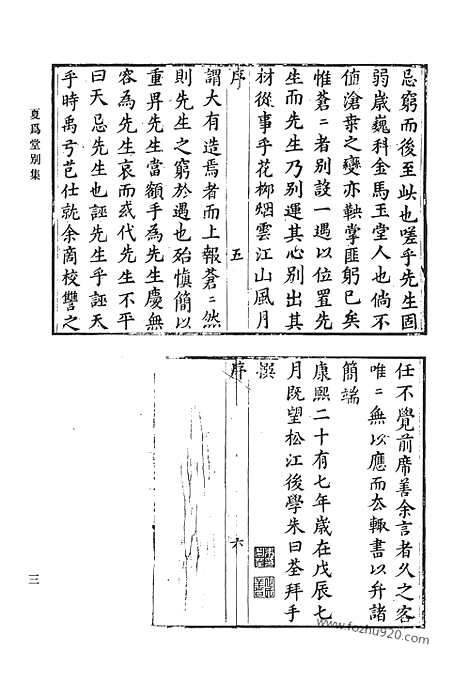 忌窮而後至此也嗟乎先生固
弱歲巍科金馬玉堂人也倘不
值滄桑之變亦鞅掌匪躬已矣
惟蒼〻者別設一遇以位置先
生而先生乃別運其心別出其
材從事乎花柳烟雲江山風月
序 五
謂大有造焉者而上報蒼〻然
則先生之窮於遇也殆慎簡以
重畀先生當額手為先生慶無
容為先生哀而或代先生不平
曰天忌先生也誣先生乎誣天
乎時禹兮芑仕就余商校讐之
夏爲堂別集
任不覺前席善余言者久之客
唯〻無以應而去輙書以弁諸
簡端
康熙二十有七年歲在戊辰七
月既望松江後學朱曰荃拜手
撰
序 六
三
www.fozhu920.com